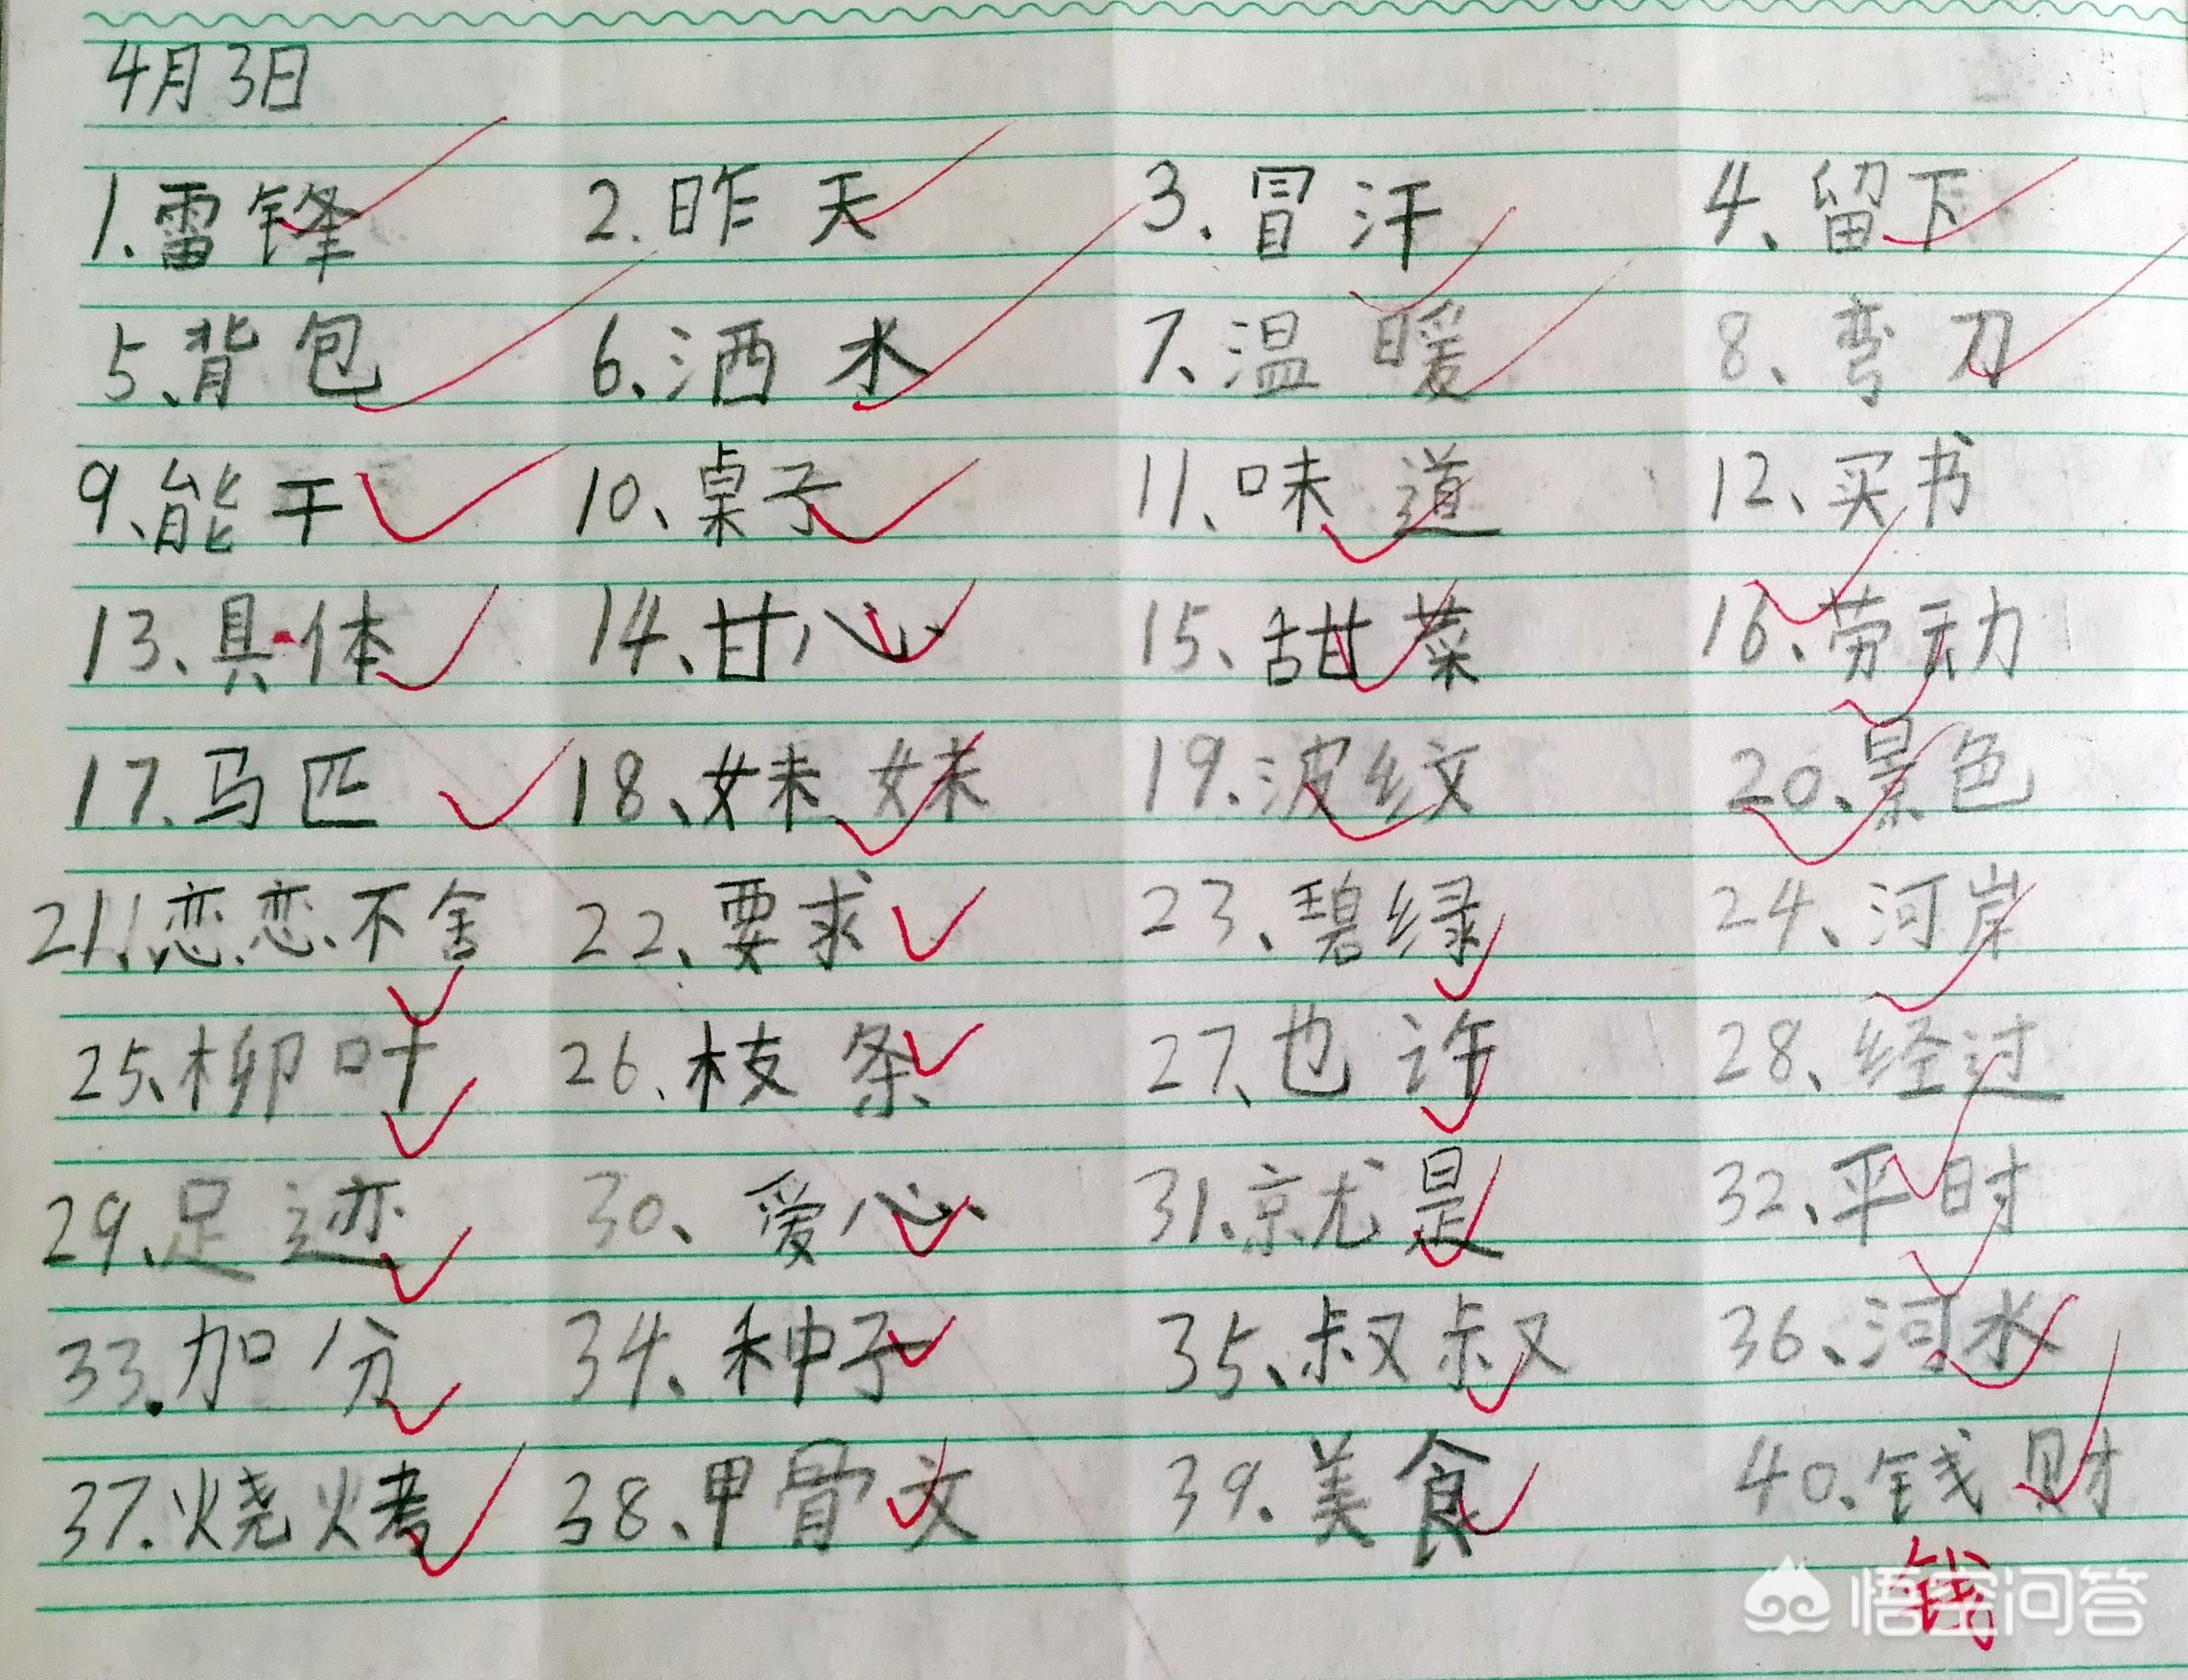 4月3日
1.雷锋 2.昨天 3.冒汗 4、留下
5、背包 6、洒水 7、温暖 8、弯刀
9、能干 10、桌子 11、味道 12、买书
13、具体 14、甘心 15、甜菜 16、劳动
17、马匹 18、妹妹 19.波纹 20、景色
21、恋恋不舍 22、要求 23、碧绿 24、河岸
25、柳叶 26、枝条 27、也许 28、经过
29、足迹 30、爱心 31、就是 32、平时
33.加分 34、种子 35、叔叔 36、河水
37.烧烤 38、甲骨文 39.美食 40.钱财
钱
悟空问答